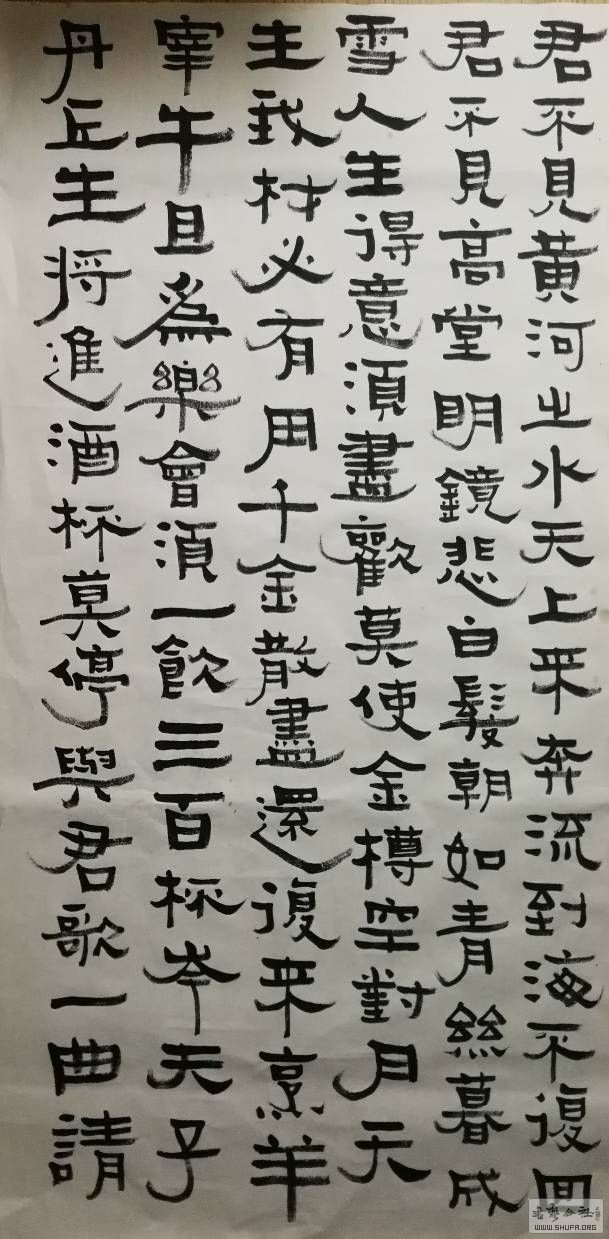 君不見黃河之水天上來奔流到海不復回
君不見高堂明鏡悲白髮朝如青絲暮成
雪人生得意須盡歡莫使金樽空對月天
生我材必有用千金散盡還復來烹羊
宰牛且爲樂會須一飲三百杯岑夫子
丹丘生將進酒杯莫停與君歌一曲請
WWW.SHUFA.ORG